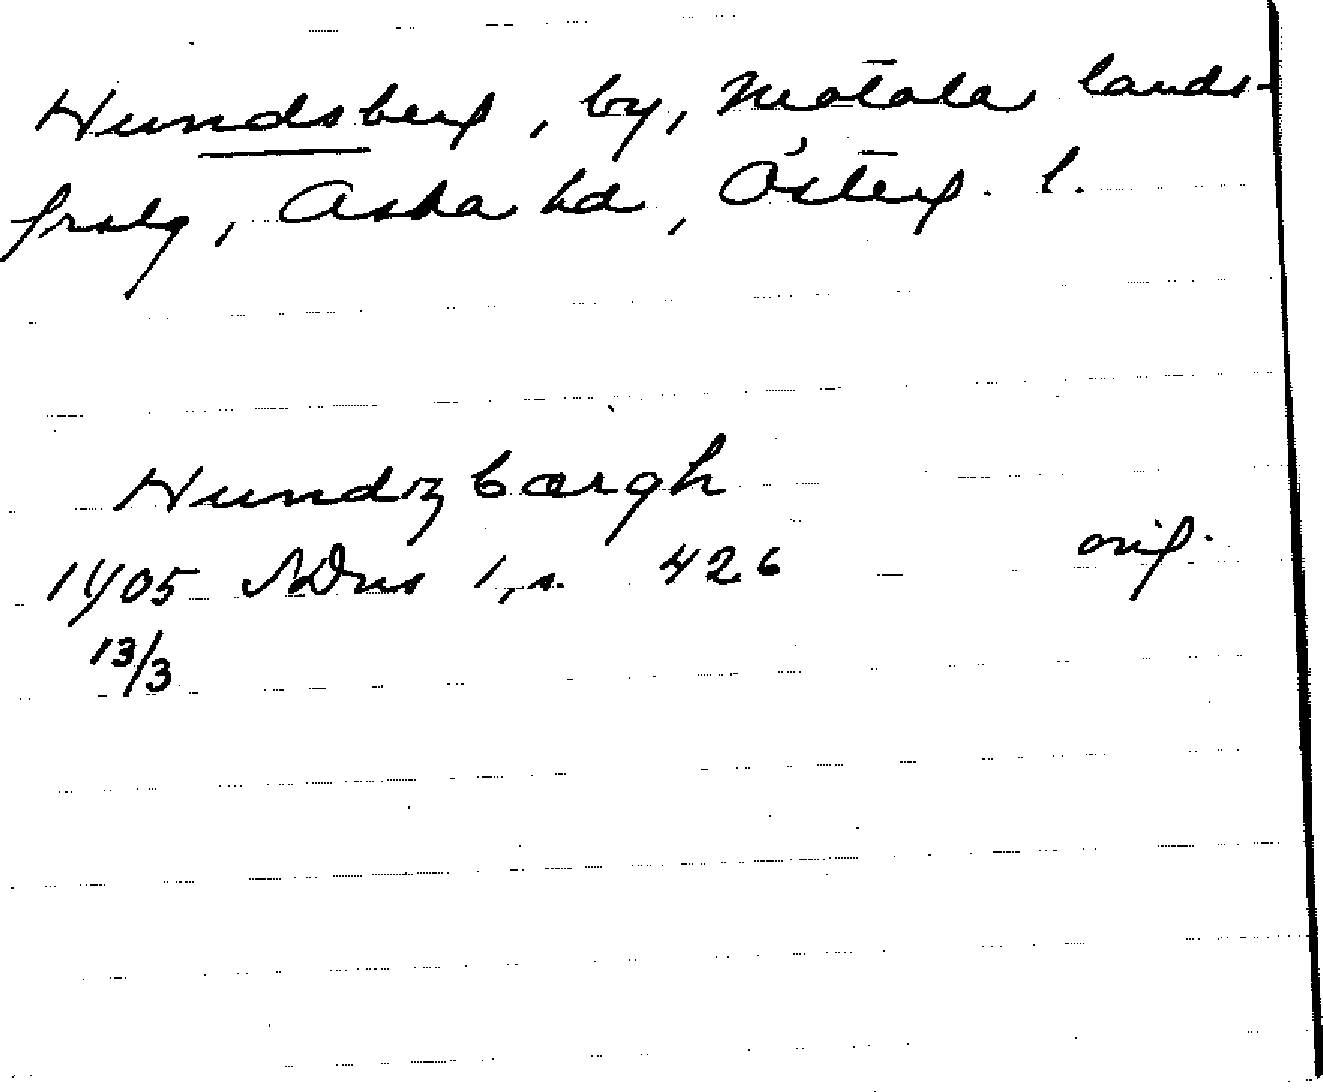 Hundsberg, by, Motala lands-
frslg, Aska hd, Österg. l.
Hundzbærgh
1405 SDns 1, s. 426 orig.
13/3